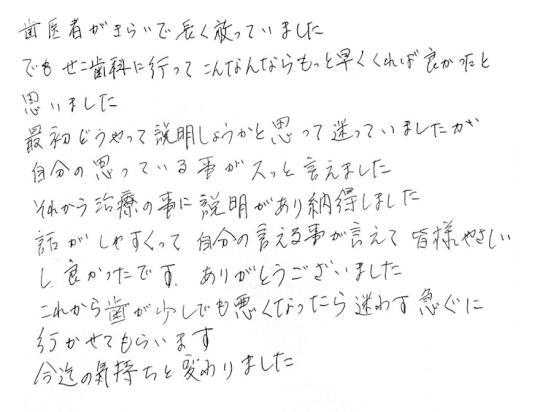 歯医者がきらいで長く放っていました
でもせこ歯科に行ってこんなんならもっと早くくれば良かったと
思いました
最初どうやって説明しようかと思って迷っていましたが
自分の思っている事がスッと言えました
それから治療の事に説明があり納得しました
話がしやすくって自分の言える事が言えて皆様やさしい
し、良かったです。ありがとうございました
これから歯が少しでも悪くなったら迷わず急ぐに
行かせてもらいます
今迄の気持ちと変わりました